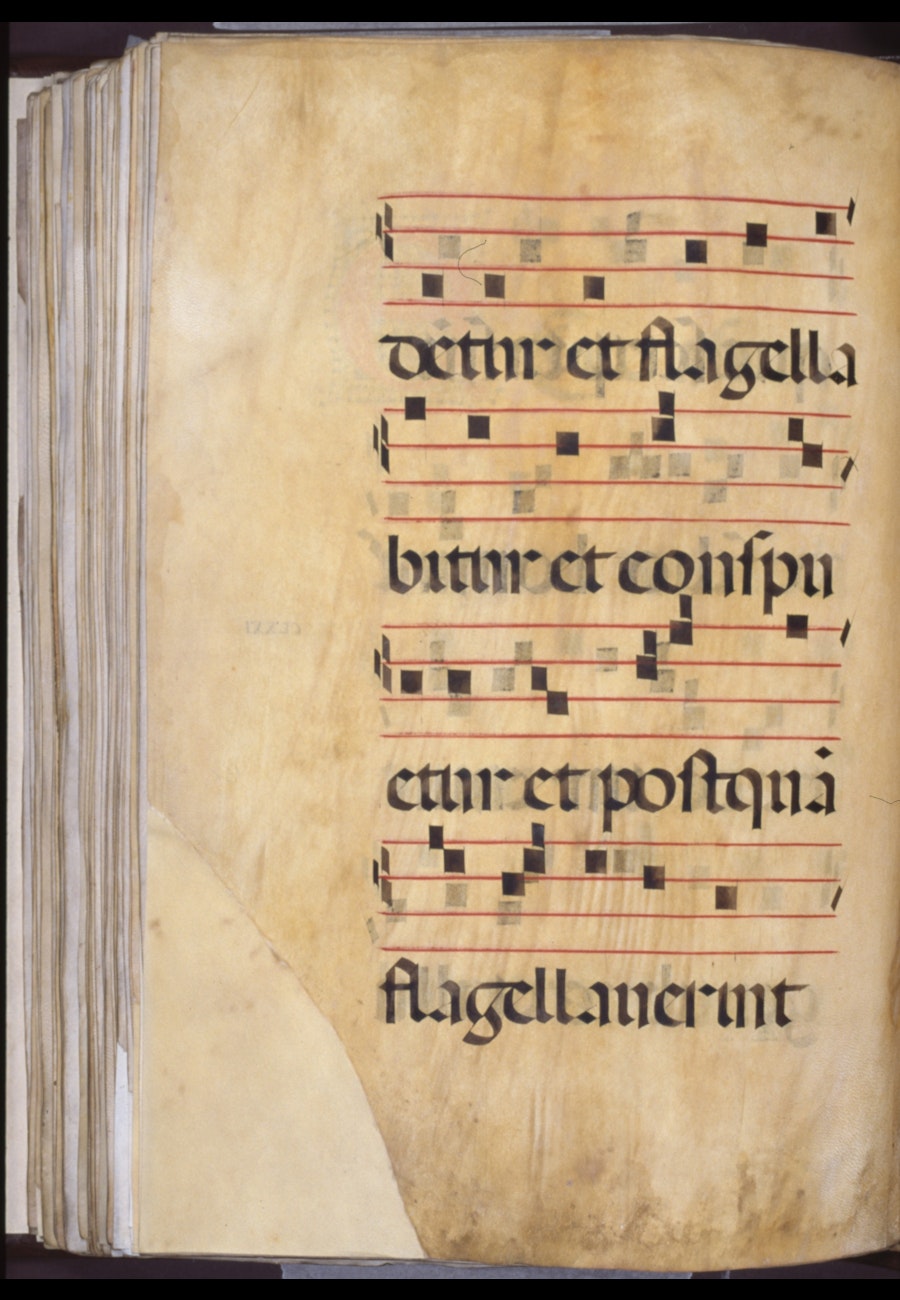 detur et flagella
bitur et conſpu
etur et poſtquā
flagellauerint